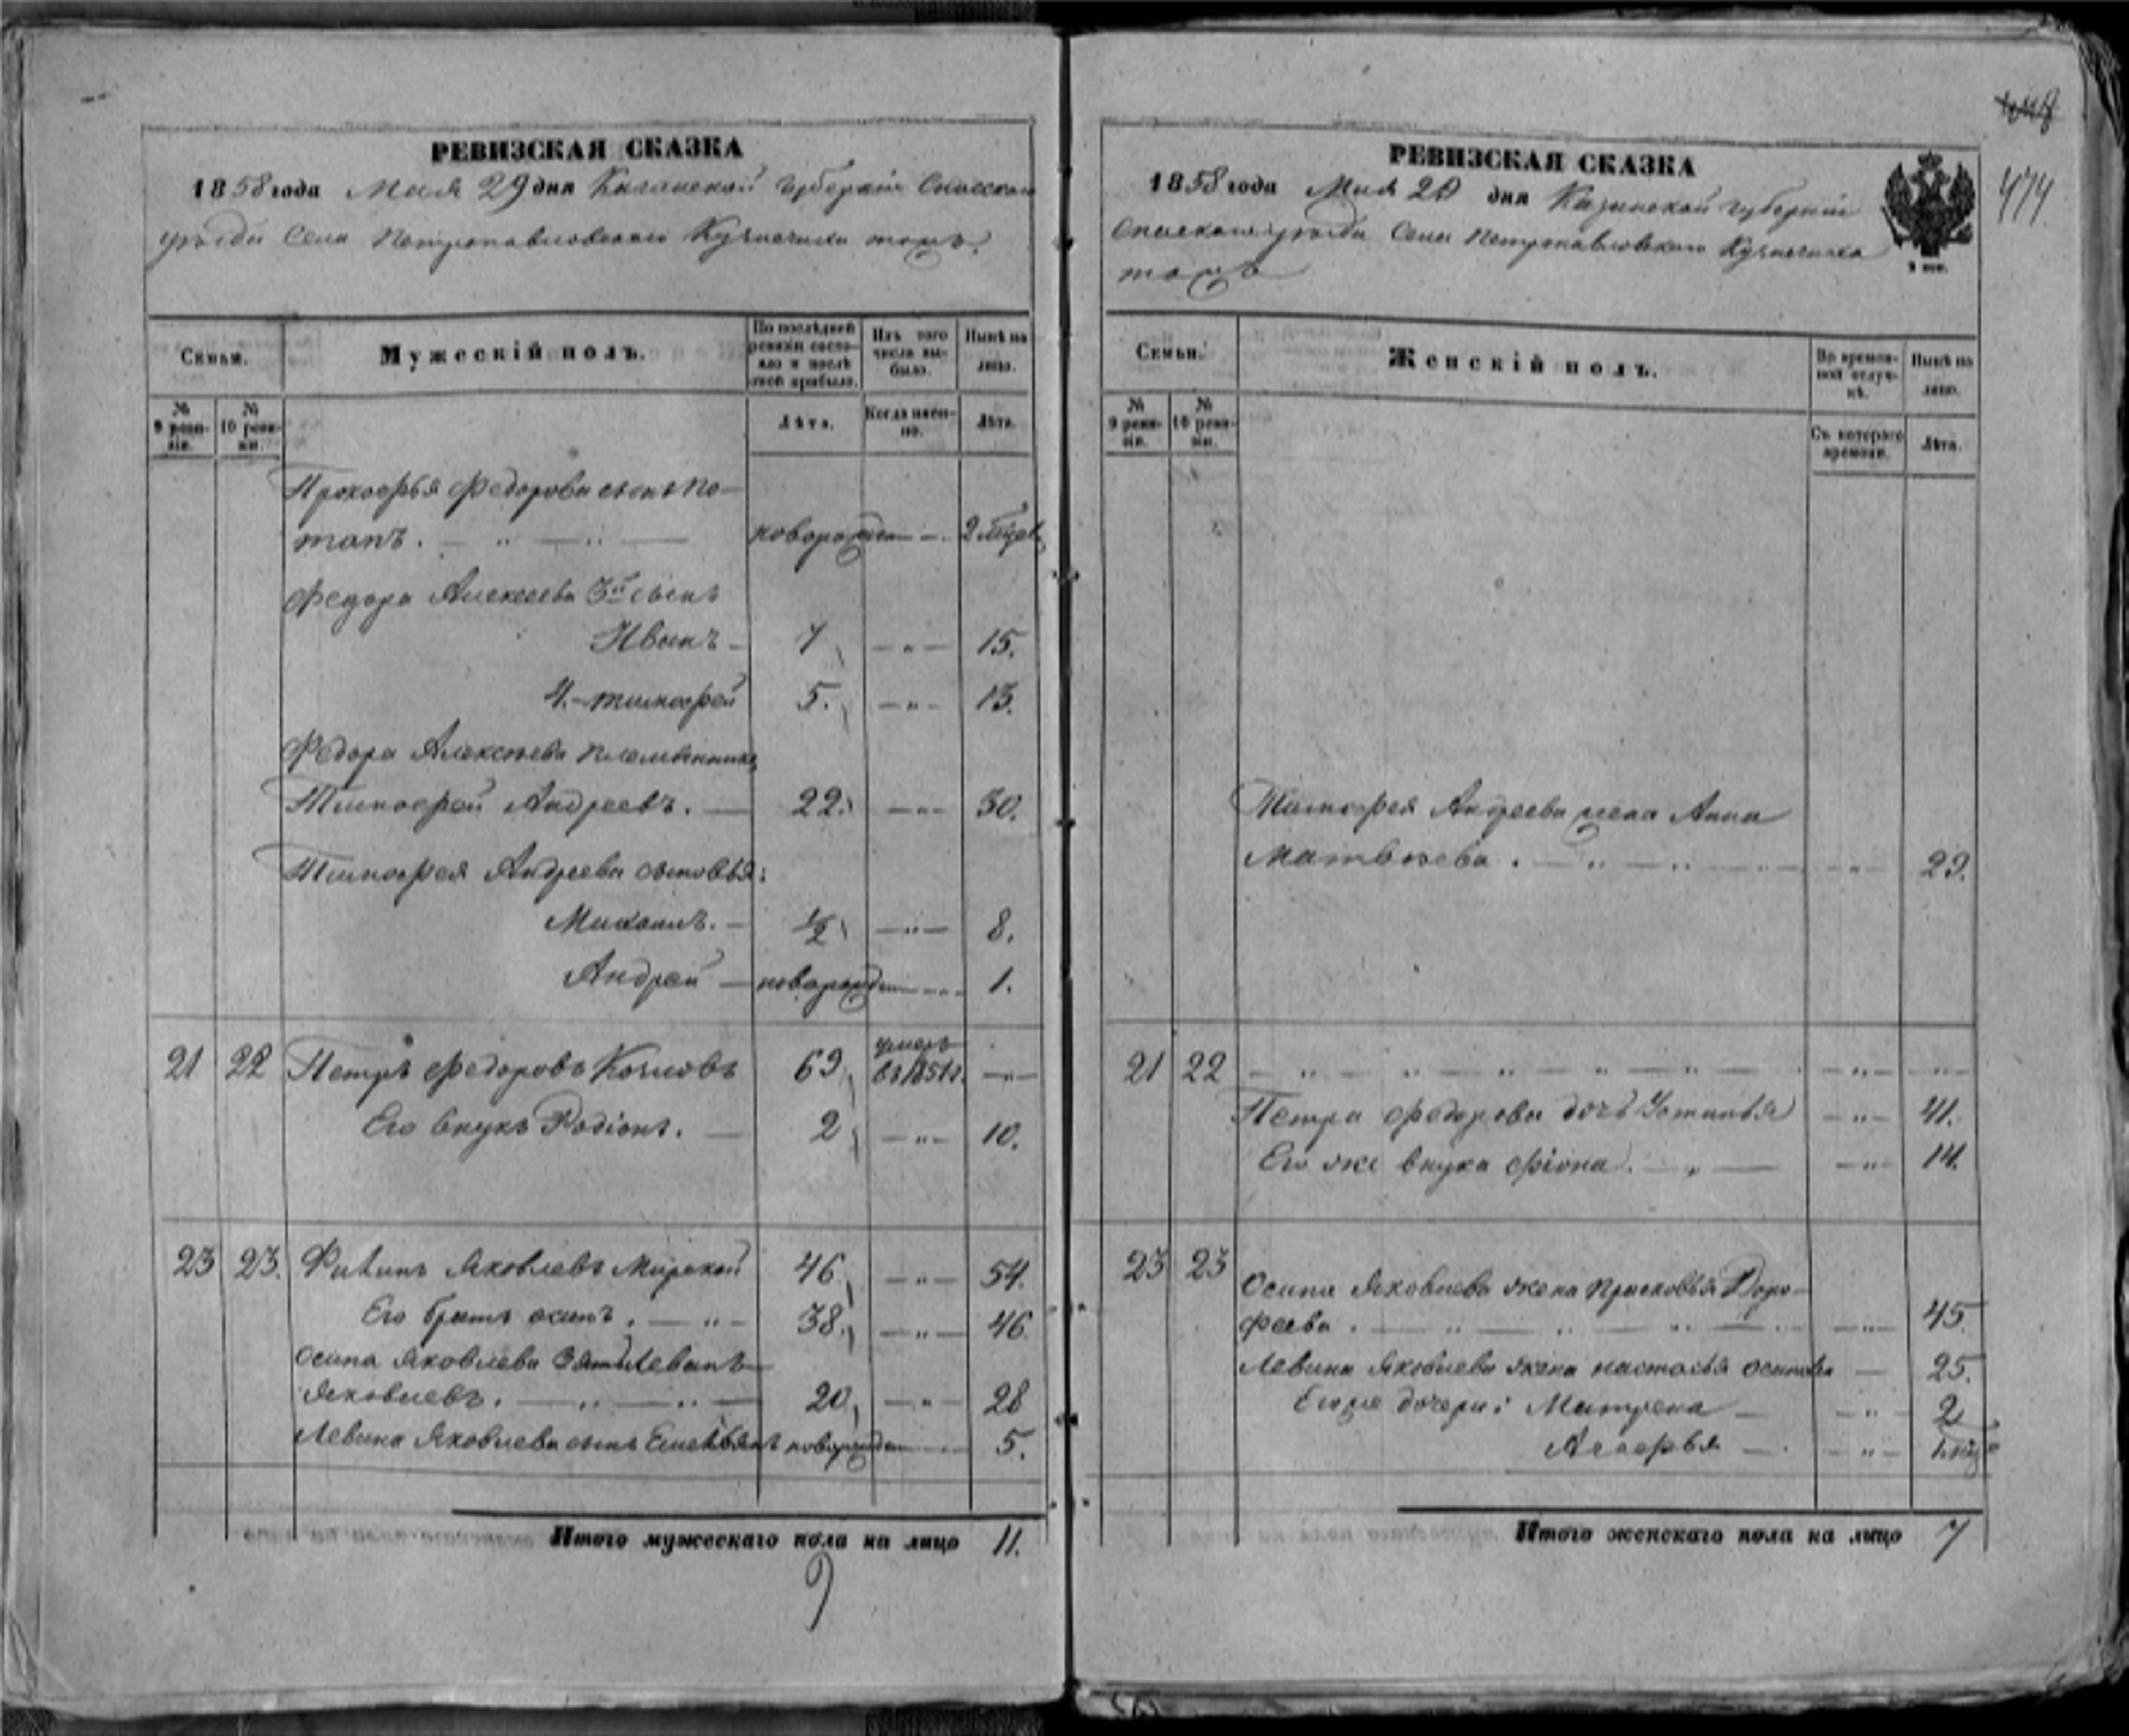 РЕВИЗСКАЯ СКАЗКА
1858 года Мая 29 дня Казанской Губернiи Спасскаго
уѣзда Села Петропавловскаго Кузнечиха тожъ.
Семьи.
Мужескiй полъ.
По послѣдней ревизiи состояло и послѣ оной прибыло.
Изъ того числа выбыло.
Нынѣ на лицо.
№ 9 ревизiи.
№ 10 ревизiи.
Лѣта.
Когда именно.
Лѣта.
Прокофья Федорова сынъ По-
тапъ. новорожден 2 мѣсяц
Федора Алексеева 3й сынъ
Иванъ 7 15.
4. Тимофей 5. 13.
Федора Алексѣева племянникъ
Тимофей Андреевъ. 22. 30.
Тимофея Андреева сыновья:
Михаилъ. 1/2 8.
Андрей новорожден 1.
21 22 Петръ Федоровъ 69 умеръ въ 1851 г.
Его внукъ Родiонъ. 2 10.
23 23. Филипъ Яковлевъ Мирской 46 54.
Его братъ осипъ. 38. 46
Осипа Яковлева зять Леванъ
Яковлевъ. 20 28
Левана Яковлева сынъ Емельянъ новорожден 5.
Итого мужескаго пола на лицо 11.
9
474
РЕВИЗСКАЯ СКАЗКА
1858 года Мая 29 дня Казанской Губернiи
Спаскаго уѣзда Села Петропавловскаго Кузнечиха
тожъ
Семьи.
Женскiй полъ.
Во временной отлучкѣ.
Нынѣ на лицо.
№ 9 ревизiи.
№ 10 ревизiи.
Съ котораго времени.
Лѣта.
Тимофея Андреева жена Анна
Матвѣева. 29.
21 22
Петра Федорова дочь Устинья 41.
Его же внука Фiона. 14.
23 23
Осипа Яковлева жена Прасковья Доро-
феева. 45
Левана Яковлева жена настасья осипова 25.
Его же дочери: Матрена 2
Агафья
Итого женскаго пола на лицо 7